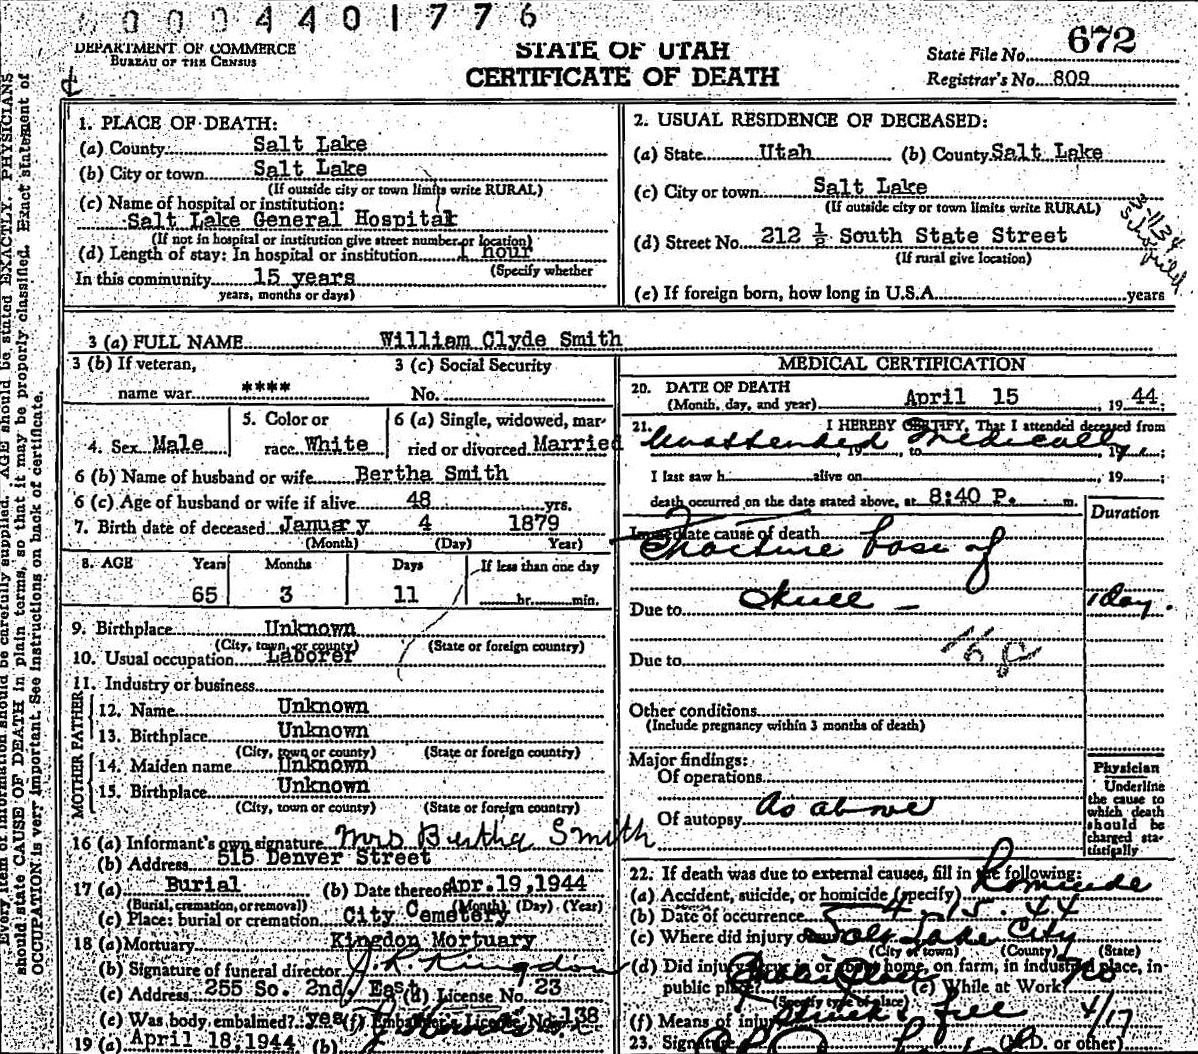 0004401776
DEPARTMENT OF COMMERCE
BUREAU OF THE CENSUS
STATE OF UTAH
CERTIFICATE OF DEATH
State File No. 672
Registrar's No. 809
Every item of information should be carefully supplied. AGE should be stated EXACTLY. PHYSICIANS
should state CAUSE OF DEATH in plain terms, so that it may be properly classified. Exact statement of
OCCUPATION is very important. See instructions on back of certificate.
1. PLACE OF DEATH:
(a) County Salt Lake
(b) City or town Salt Lake
(If outside city or town limits write RURAL)
(c) Name of hospital or institution:
Salt Lake General Hospital
(If not in hospital or institution give street number or location)
(d) Length of stay: In hospital or institution 1 hour
(Specify whether
In this community 15 years
years, months or days)
2. USUAL RESIDENCE OF DECEASED:
(a) State Utah (b) County Salt Lake
(c) City or town Salt Lake
(If outside city or town limits write RURAL)
(d) Street No. 212 ½ South State Street
(If rural give location)
(e) If foreign born, how long in U.S.A. years
3 (a) FULL NAME William Clyde Smith
3 (b) If veteran,
name war ****
3 (c) Social Security
No.
4. Sex Male
5. Color or
race White
6 (a) Single, widowed, mar-
ried or divorced Married
6 (b) Name of husband or wife Bertha Smith
6 (c) Age of husband or wife if alive 48 yrs.
7. Birth date of deceased January 4 1879
(Month) (Day) Year)
8. AGE Years Months Days If less than one day
65 3 11 hr. min.
9. Birthplace Unknown
(City, town, or county) (State or foreign country)
10. Usual occupation Laborer
11. Industry or business
FATHER
12. Name Unknown
13. Birthplace Unknown
(City, town or county) (State or foreign country)
MOTHER
14. Maiden name Unknown
15. Birthplace Unknown
(City, town or county) (State or foreign country)
16 (a) Informant's own signature Mrs Bertha Smith
(b) Address 515 Denver Street
17 (a) Burial (b) Date thereof Apr. 19, 1944
(Burial, cremation, or removal) (Month) (Day) (Year)
(c) Place: burial or cremation City Cemetery
18 (a) Mortuary Kingdon Mortuary
(b) Signature of funeral director J. R. Kingdon
(c) Address 255 So. 2nd East (d) License No. 23
(e) Was body embalmed? yes (f) Embalmer's License No. 138
19 (a) April 18, 1944 (b)
MEDICAL CERTIFICATION
20. DATE OF DEATH
(Month, day, and year) April 15, 19 44;
21. I HEREBY CERTIFY, That I attended deceased from
Unattended Medically, 19, to, 19;
I last saw h alive on, 19;
death occurred on the date stated above, at 8:40 P. m.
Duration
Immediate cause of death
Fracture base of
Due to skull - 1 day.
Due to
Other conditions
(Include pregnancy within 3 months of death)
Major findings:
Of operations
Of autopsy As above
Physician
Underline
the cause to
which death
should be
charged sta-
tistically
22. If death was due to external causes, fill in the following:
(a) Accident, suicide, or homicide (specify) Homicide
(b) Date of occurrence 4.15.44
(c) Where did injury occur Salt Lake City
(City or town) (County) (State)
(d) Did injury occur in or about home, on farm, in industrial place, in
public place? Public Place (e) While at Work? No
(Specify type of place)
(f) Means of injury Struck & fell 4/17
23. Signature (M.D. or other)